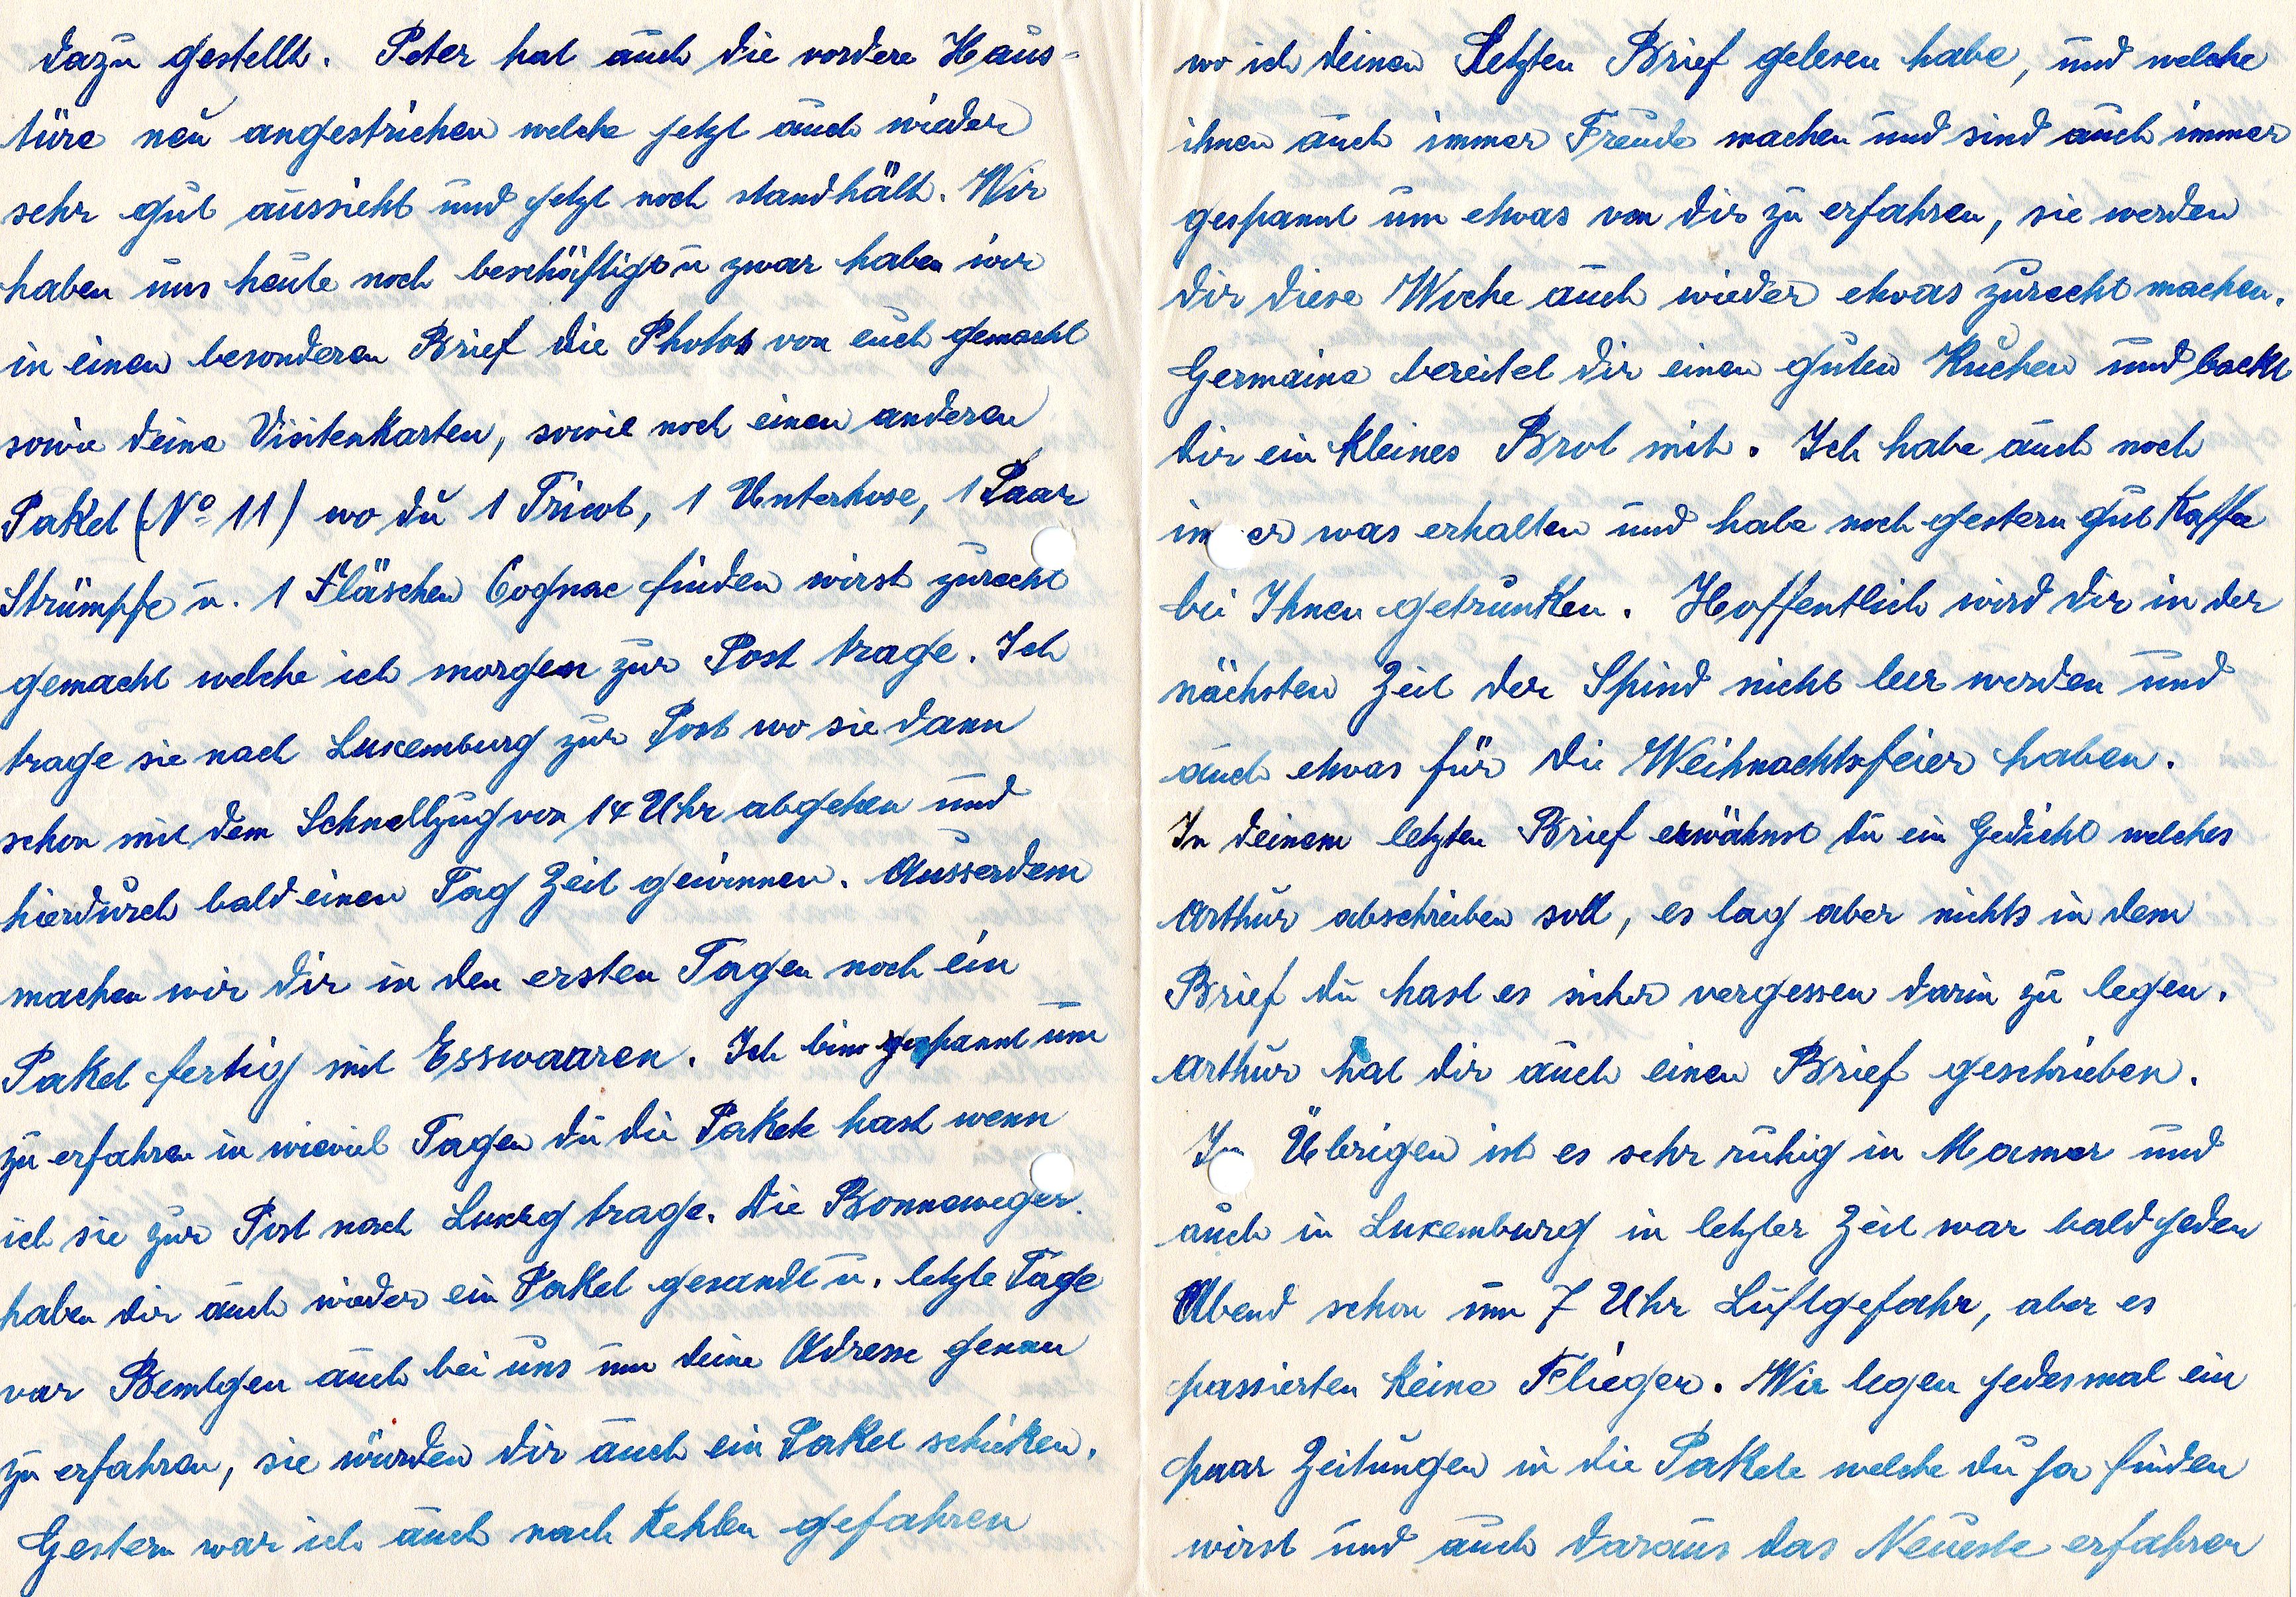 dazu gestellt. Peter hat auch die vordere Haus=
türe neu angestrichen welche jetzt auch wieder
sehr gut aussieht und jetzt noch standhält. Wir
haben uns heute noch beschäftigt u zwar haben wir
in einen besonderen Brief die Photos von euch gemacht
sowie deine Visitenkarten, sowie noch einen anderen
Paket (No 11) wo du 1 Tricot, 1 Unterhose, 1 Paar
Strümpfe u. 1 Fläschen Cognac finden wirst zurecht
gemacht welche ich morgen zur Post trage. Ich
trage sie nach Luxemburg zur Post wo sie dann
schon mit dem Schnellzug von 14 Uhr abgehen und
hierdurch bald einen Tag Zeit gewinnen. Ausserdem
machen wir dir in den ersten Tagen noch ein
Paket fertig mit Esswaaren. Ich bin gespannt um
zu erfahren in wieviel Tagen du die Pakete hast wenn
ich sie zur Post nach Luxbg trage. Die Bonneweger
haben dir auch wieder ein Paket gesandt u. letzte Tage
war Bemtgen auch bei uns um deine Adresse genau
zu erfahren, sie würden dir auch ein Paket schicken.
Gestern war ich auch nach Kehlen gefahren
wo ich deinen Letzten Brief gelesen habe, und welche
ihnen auch immer Freude machen und sind auch immer
gespannt um etwas von dir zu erfahren, sie werden
dir diese Woche auch wieder etwas zurecht machen.
Germaine bereitet dir einen guten Kuchen und backt
dir ein kleines Brot mit. Ich habe auch noch
immer was erhalten und habe noch gestern gut Kaffe
bei Ihnen getrunken. Hoffentlich wird dir in der
nächsten Zeit der Spind nicht leer werden und
auch etwas für die Weihnachtsfeier haben.
In deinem letzten Brief erwähnst du ein Gedicht welches
Arthur abschreiben soll, es lag aber nichts in dem
Brief du hast es sicher vergessen darin zu legen.
Arthur hat dir auch einen Brief geschrieben.
Im Übrigen ist es sehr ruhig in Mamer und
auch in Luxemburg in letzter Zeit war bald jeden
Abend schon um 7 Uhr Luftgefahr, aber es
passierten keine Flieger. Wir legen jedesmal ein
paar Zeitungen in die Pakete welche du ja finden
wirst und auch daraus das Neueste erfahren